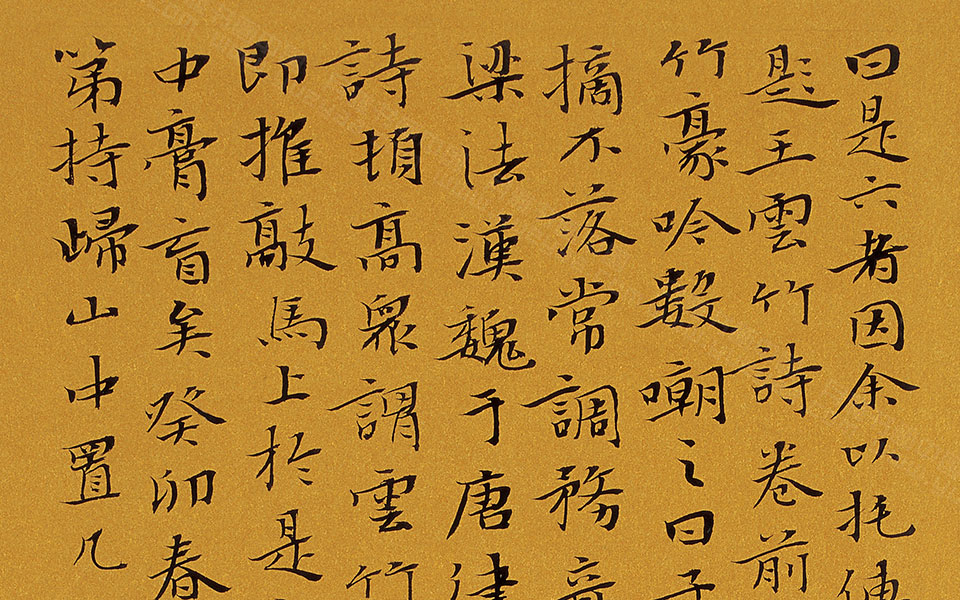 曰是六者因余以托
題王雲竹詩卷前
竹豪吟數嘲之曰子
摘不落常調務
梁法漢魏于唐律
詩頓高衆謂雲竹
即推敲馬上於是
中膏肓矣癸卯春
第持歸山中置几